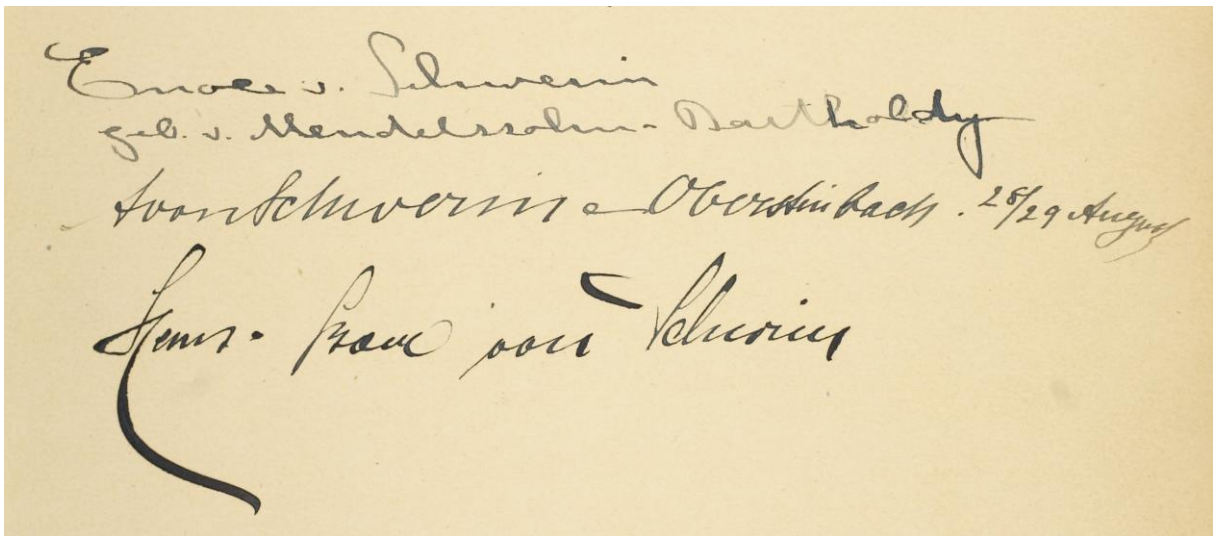 Enole v. Schwerin
geb. v. Mendelssohn-Bartholdy
von Schwerin Obersteinbach. 28/29 August
von Schwerin